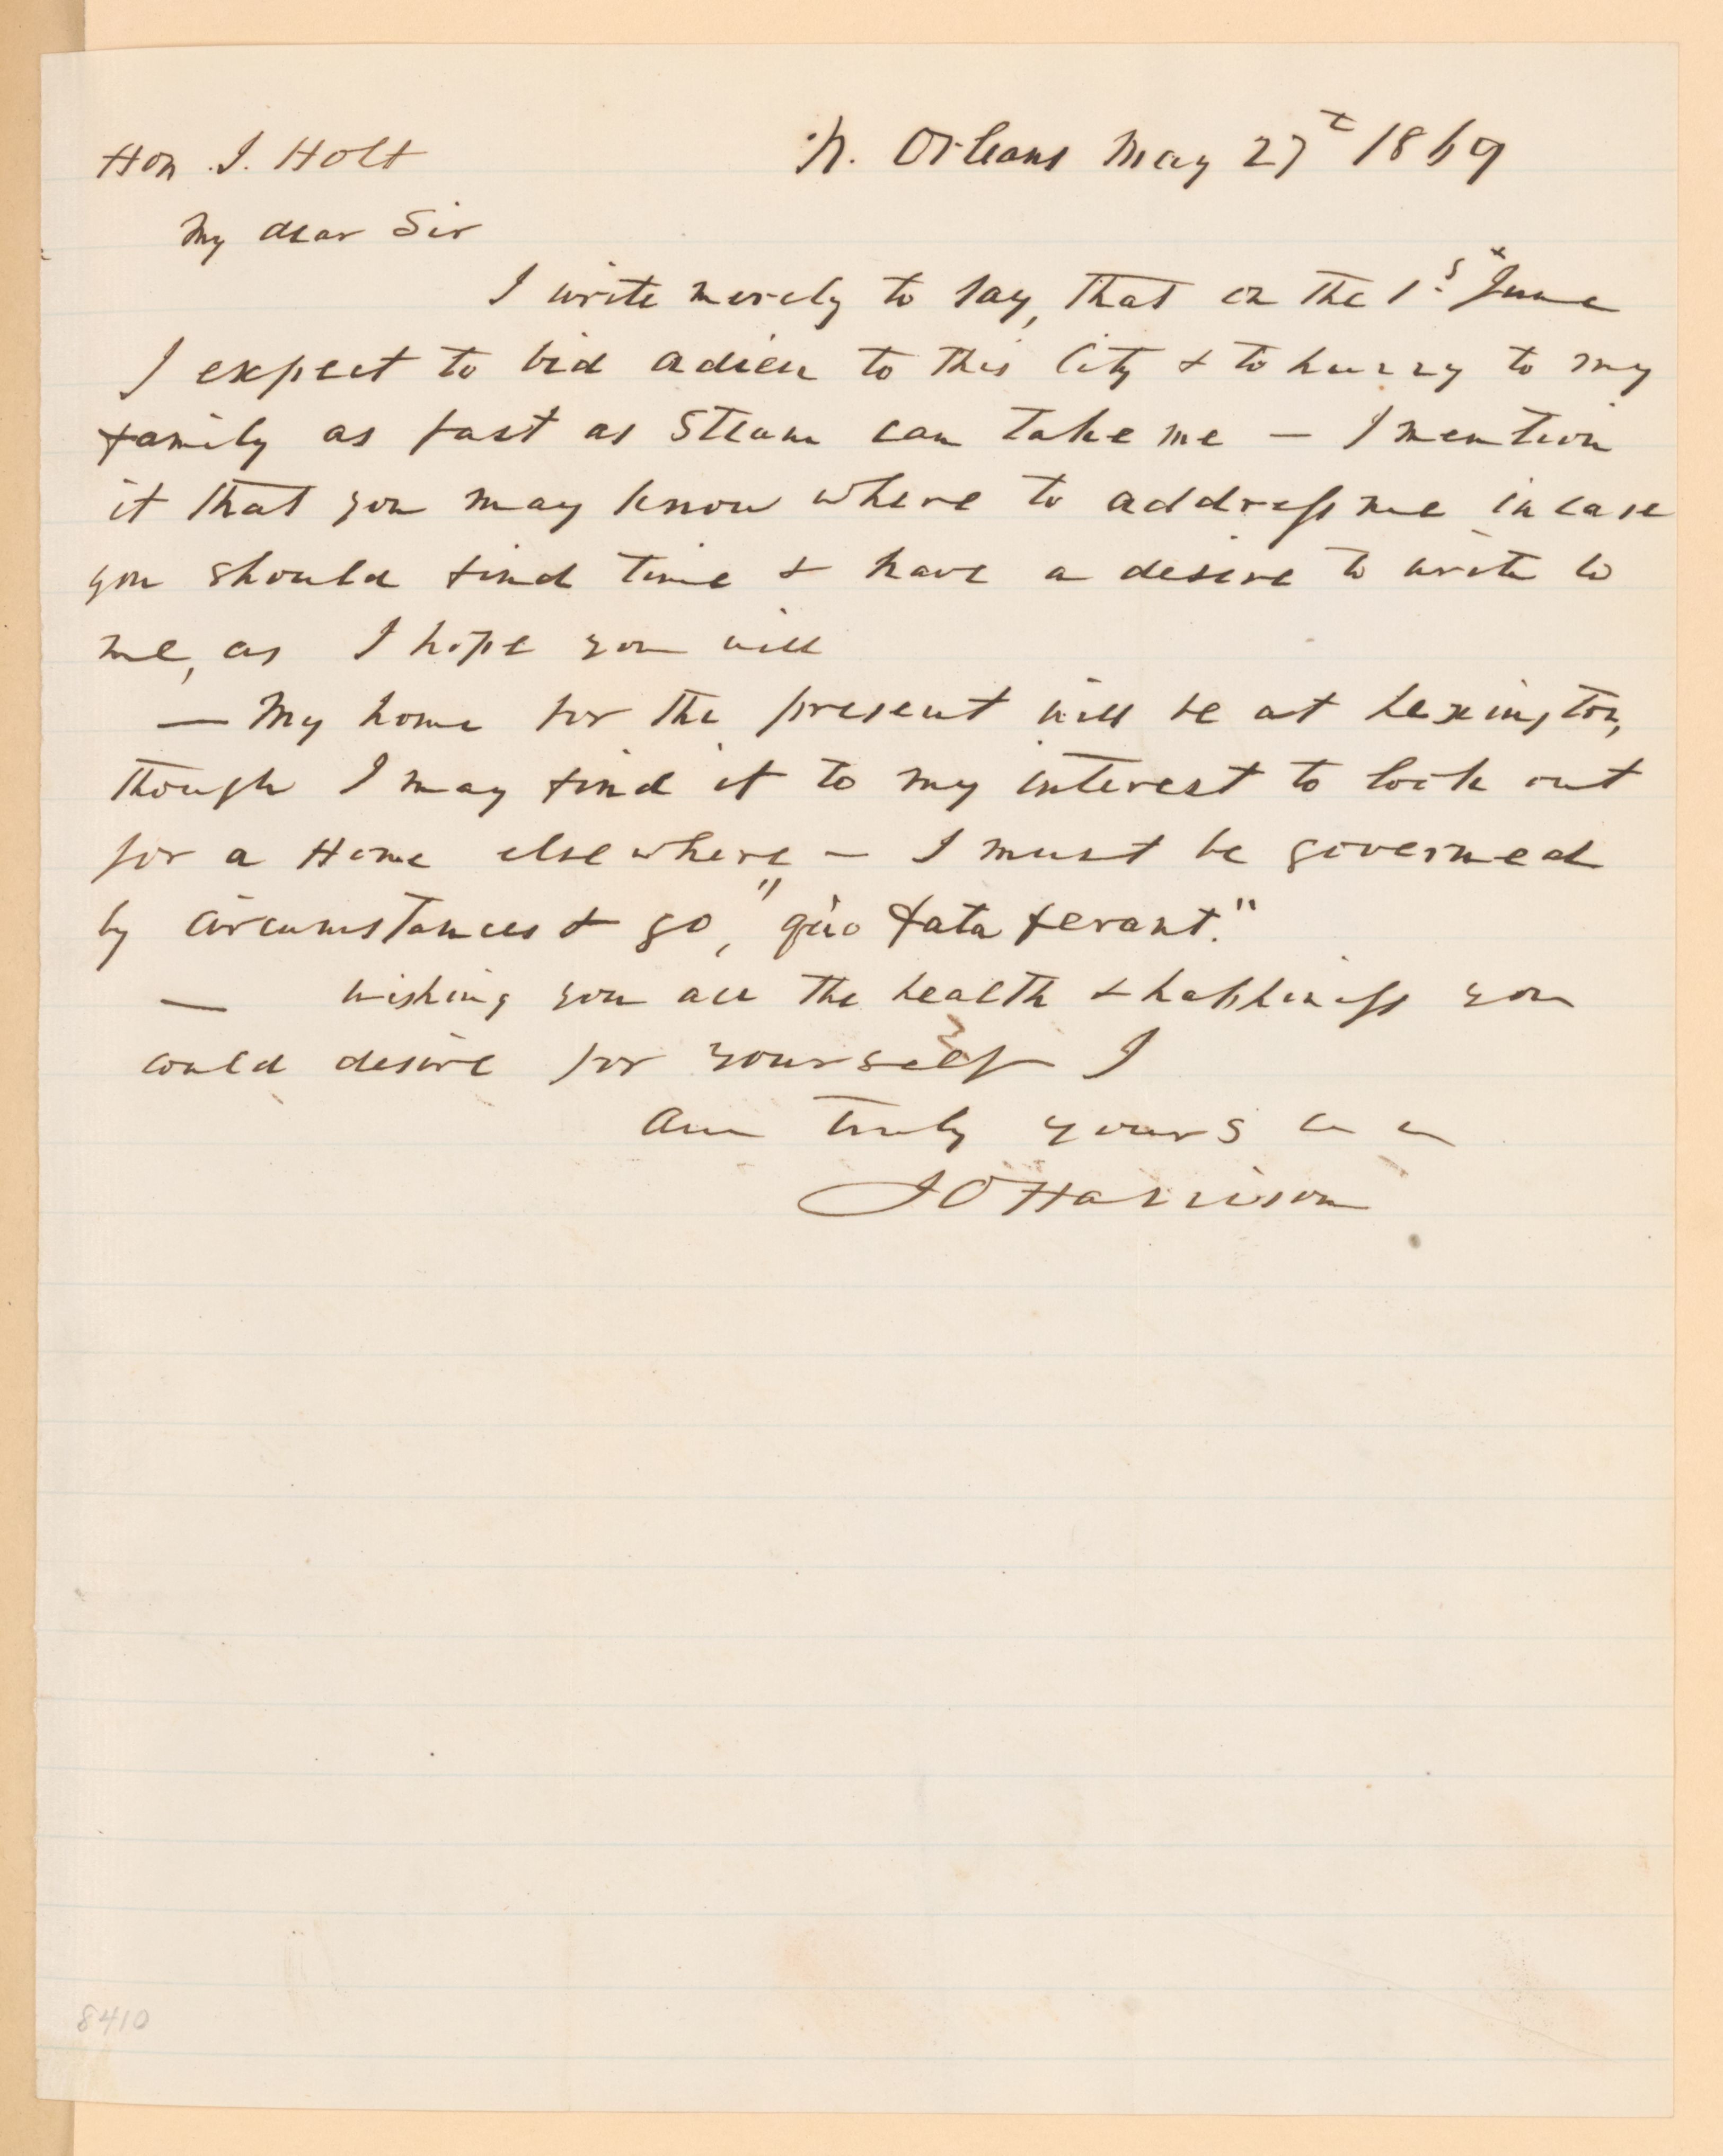 Hon J. Holt
N. Orleans May 27t 1869
My dear Sir
I write merely to say, that on the 1st June
I expect to bid adieu to this City & to hurry to my
family as fast as Steam can take me — I mention
it that you may know where to address me in case
you should find time & have a desire to write to
me, as I hope you will
— My home for the present will be at Lexington,
though I may find it to my interest to look out
for a Home elsewhere — I must be governed
by circumstances & go, "quo fata ferant."
— wishing you all the health & happiness you
could desire for yourself I
am truly yours
J O Harrison
8410